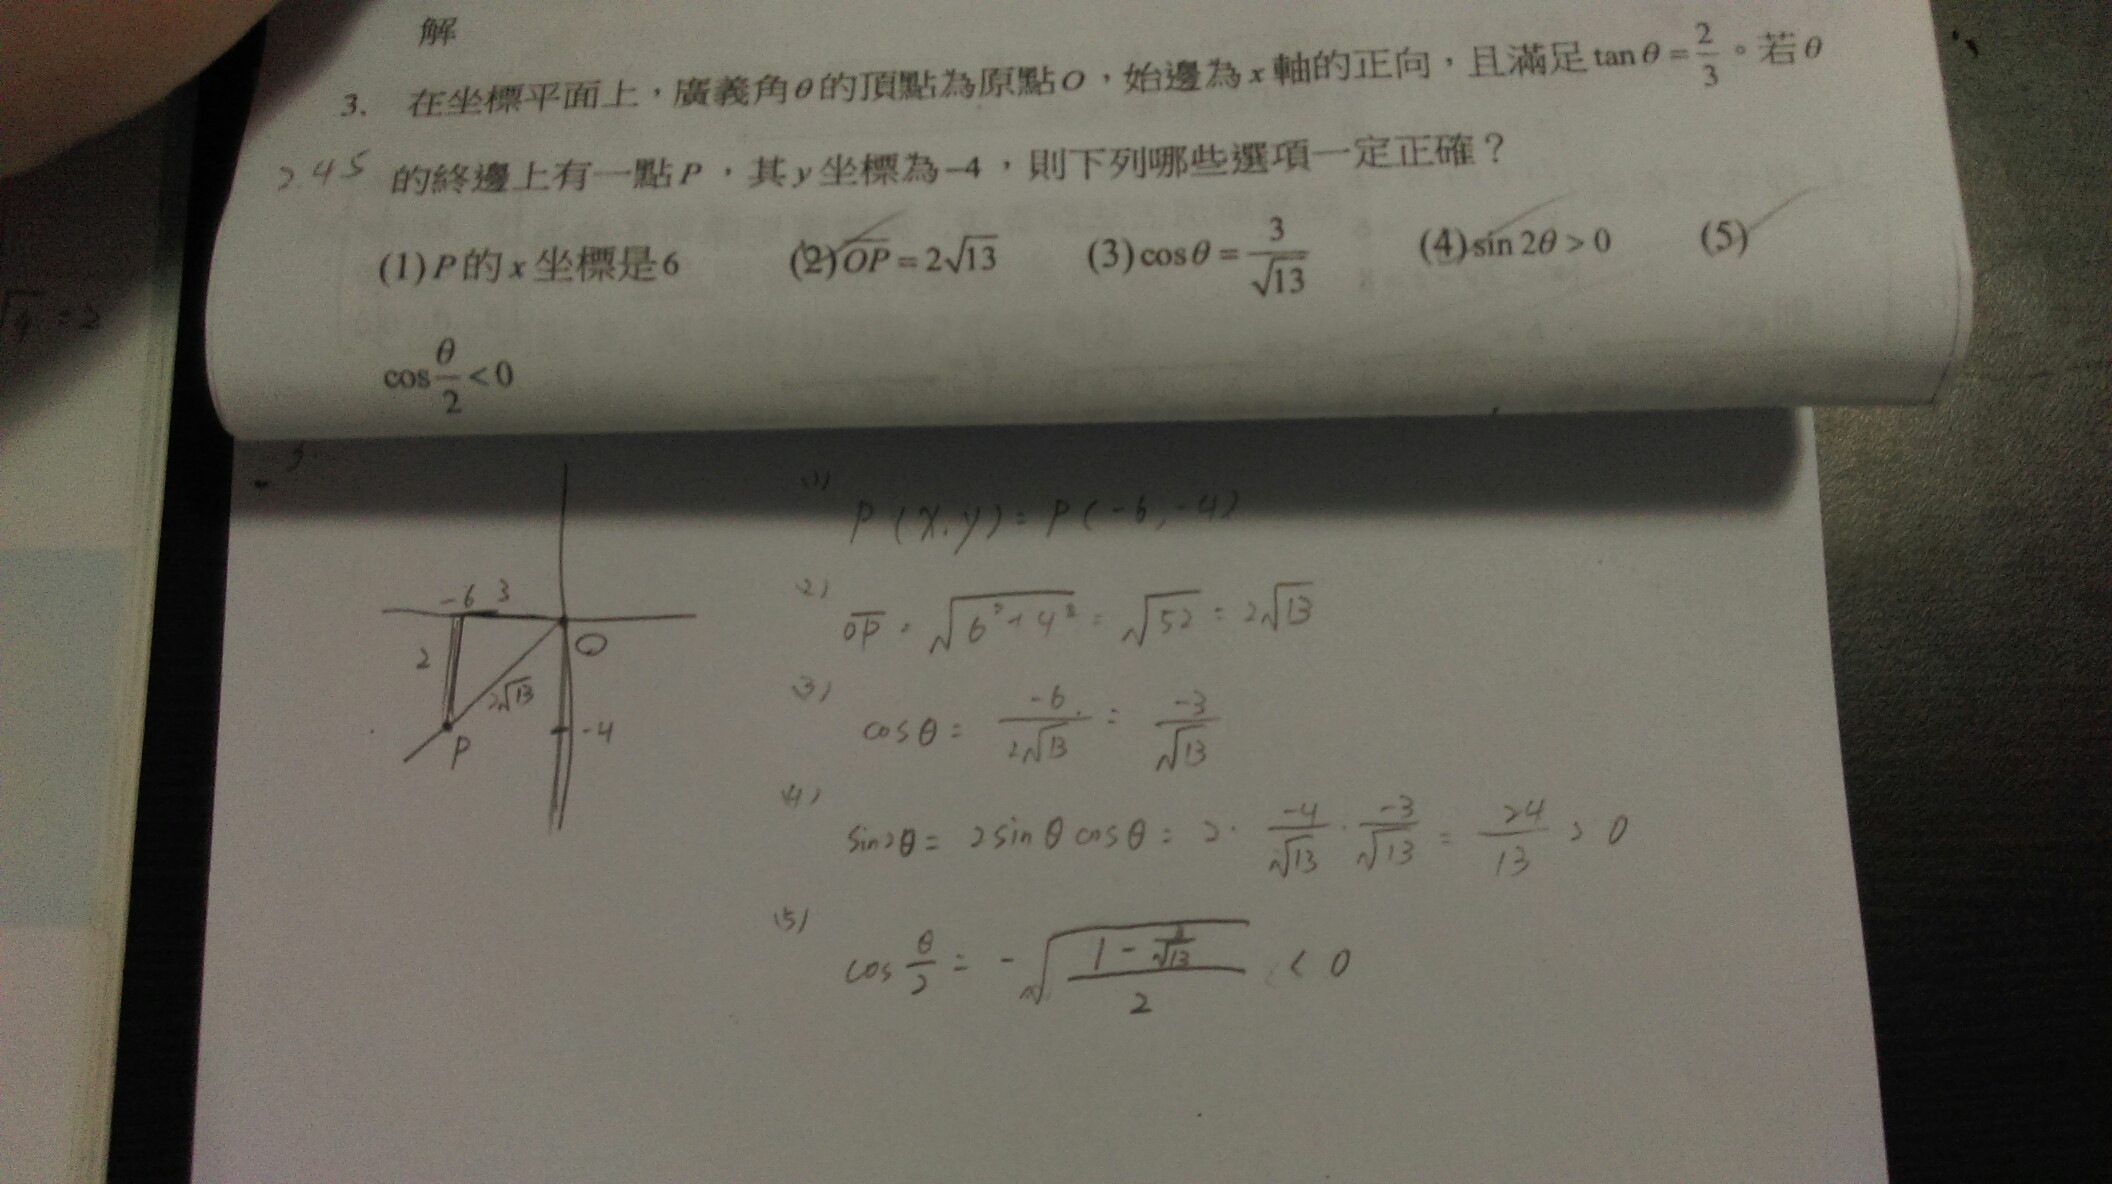 解
3. 在坐標平面上，廣義角θ的頂點為原點O，始邊為x軸的正向，且滿足tanθ=2/3。若θ
245 的終邊上有一點P，其y坐標為-4，則下列哪些選項一定正確？
(1)P的x坐標是6 (2)OP=2√13 (3)cosθ=3/√13 (4)sin2θ>0 (5)
cosθ/2<0
√4=2
3.
-6 3
2
O
2√13
P
-4
(1) P(x,y)=P(-6,-4)
(2) OP=√(6²+4²)=√52=2√13
(3) cosθ=-6/2√13=-3/√13
(4) sin2θ=2sinθcosθ=2·-4/√13·-3/√13=24/13>0
(5) cosθ/2=-√((1-3/√13)/2)<0